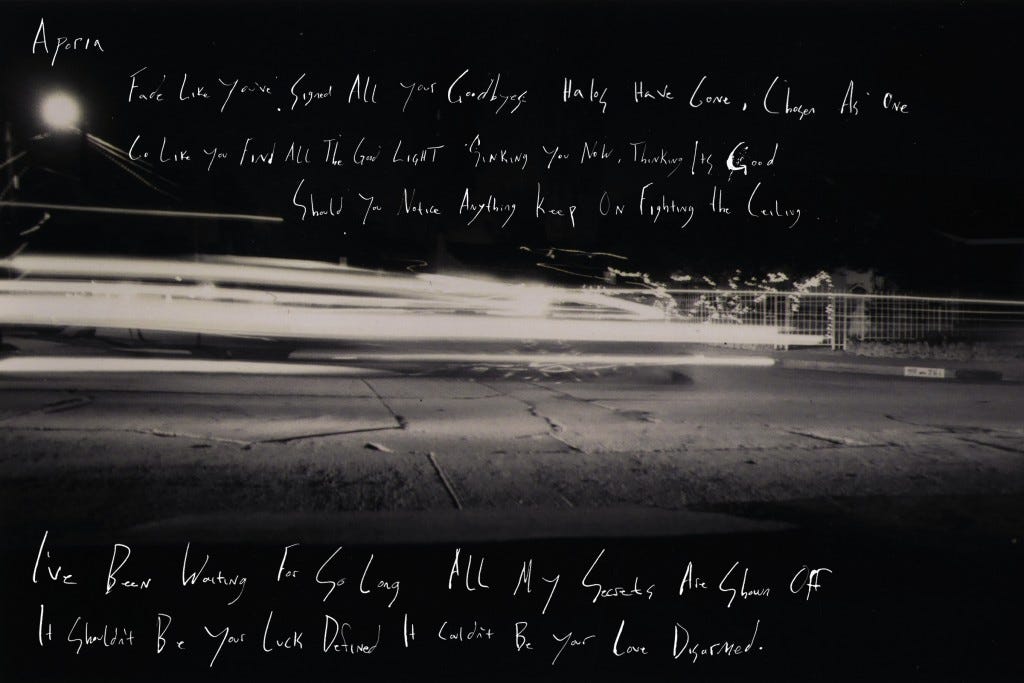 Aporia
Fade Like You've Signed All Your Goodbyes Halos Have Gone, Chosen As One
Go Like You Find All The God Light Sinking You Now, Thinking Its Good
Should You Notice Anything Keep On Fighting the Ceiling.
I've Been Waiting For So Long All My Secrets Are Shown Off
It Shouldn't Be Your Luck Defined It Couldn't Be Your Love Disarmed.